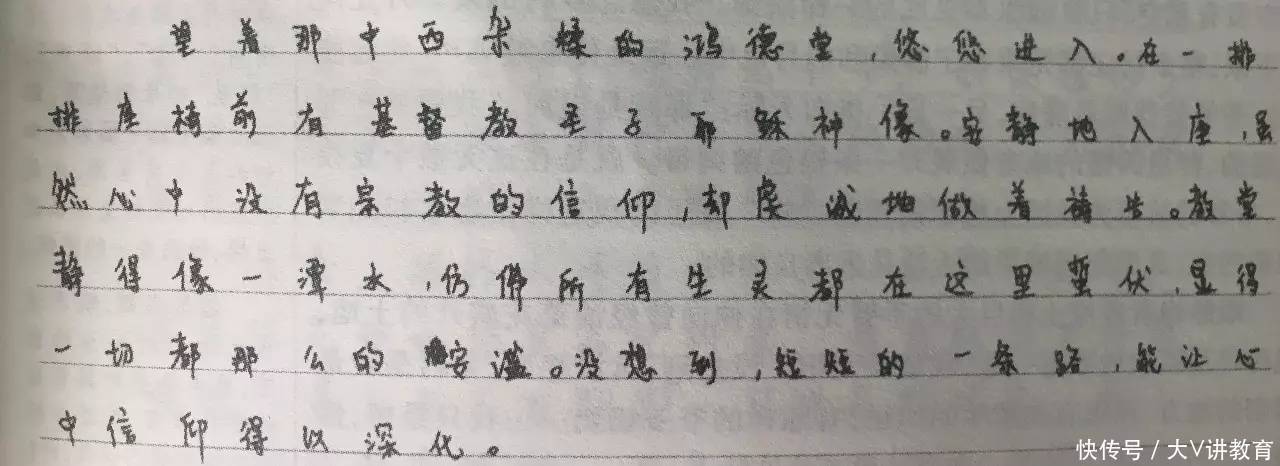 望着那中西杂糅的鸿德堂，悠悠进入。在一排
排座椅前有基督教圣子耶稣神像。安静地入座，虽
然心中没有宗教的信仰，却虔诚地做着祷告。教堂
静得像一潭水，仿佛所有生灵都在这里蛰伏，显得
一切都那么的安谧。没想到，短短的一条路，能让心
中信仰得以深化。
快传号 / 大V讲教育